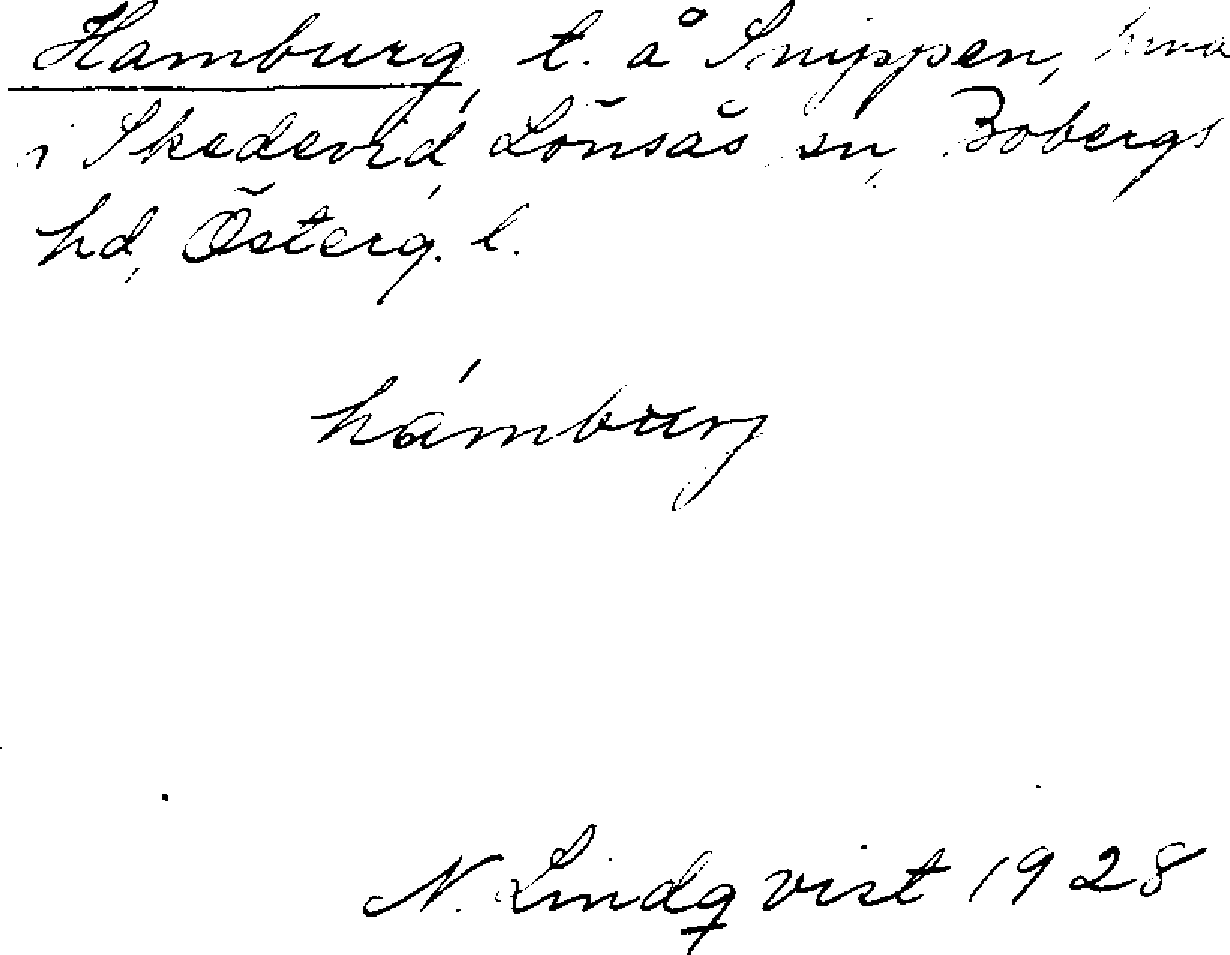 Hamburg, t. å Snippen, hmd
i Skedevid, Lönsås sn, Bobergs
hd, Österg. l.
hámburg
N. Lindqvist 1928